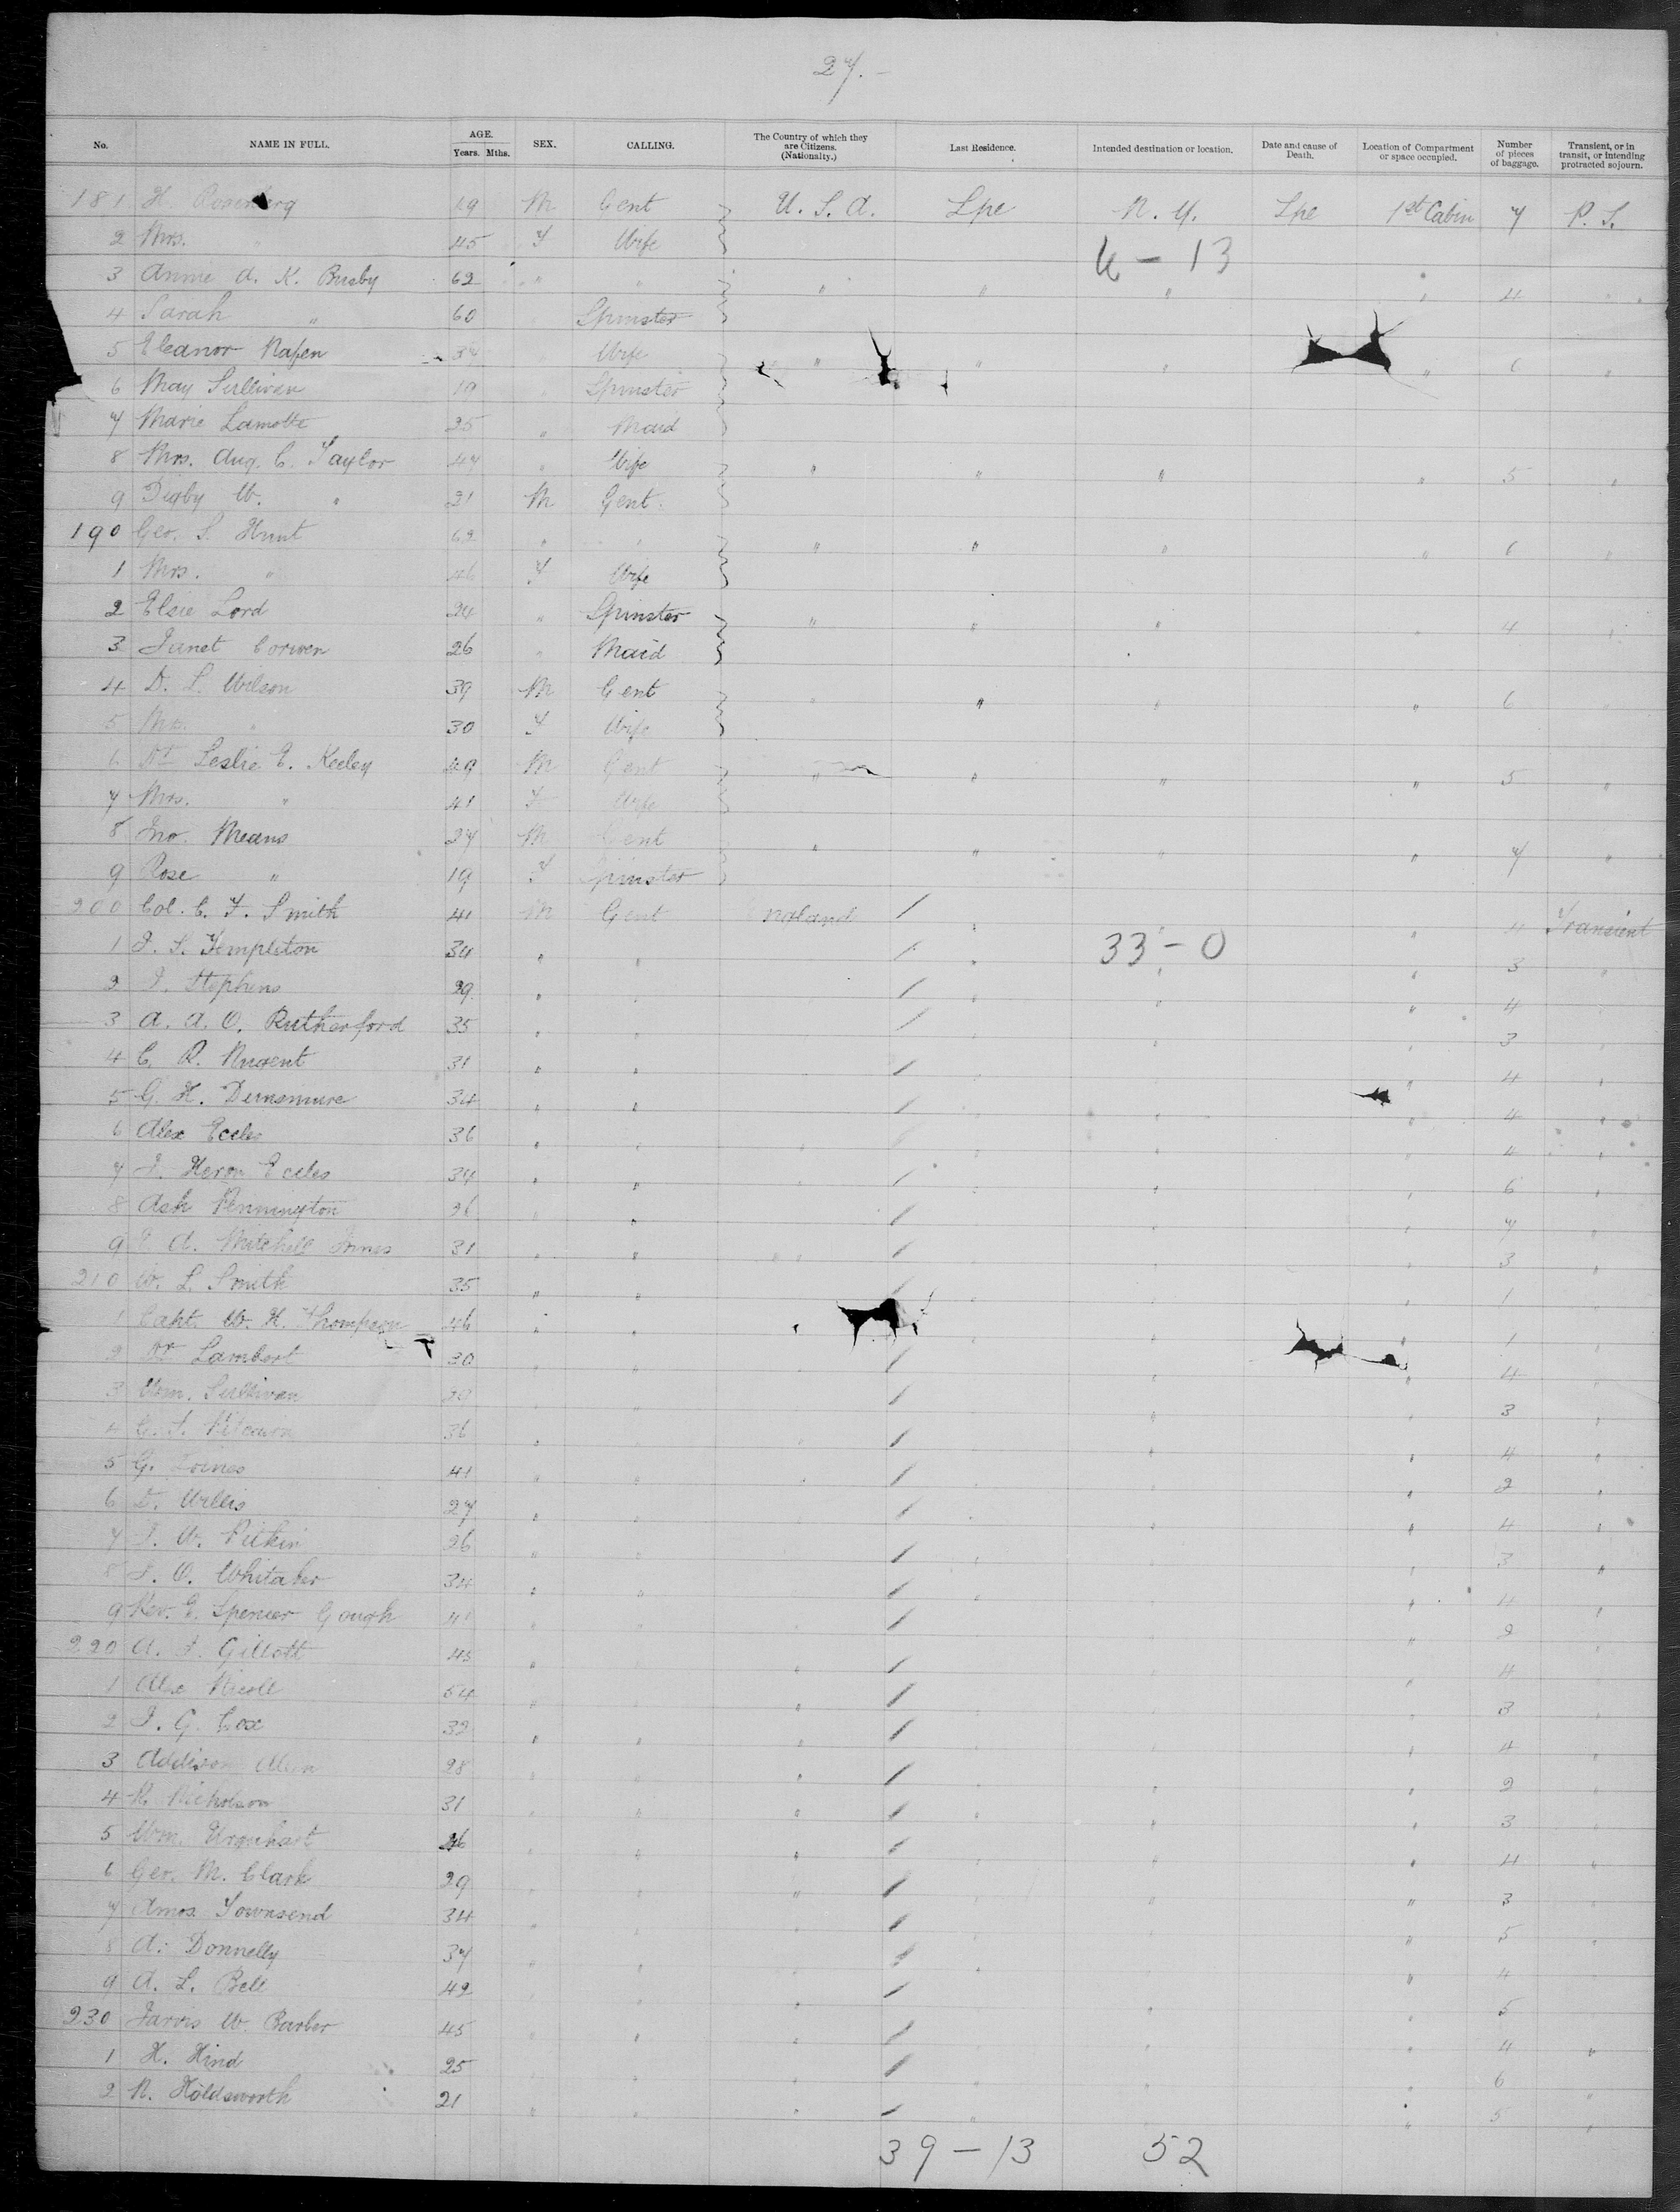 27.-
No. NAME IN FULL. AGE. Years. Mths. SEX. CALLING. The Country of which they are Citizens. (Nationalty.) Last Residence. Intended destination or location. Date and cause of Death. Location of Compartment or space occupied. Number of pieces of baggage. Transient, or in transit, or intending protracted sojourn.
181 H. Rosenberg 49 M Gent U.S.A. Lpe N.Y. Lpe 1st Cabin 7 P.S.
2 Mrs. " 45 F Wife
6 - 13
3 Annie A. K. Busby 62 " " " " " " 4 "
4 Sarah " 60 Spinster
5 Eleanor 34 Wife " " " " 6 "
6 May Sullivan 19 Spinster
7 Marie Lamotte 25 " Maid
8 Mrs. Aug. C. Taylor 47 " Wife " " " " 5 "
9 Digby W. " 21 M Gent.
190 Geo. S. Hunt 62 " " " " " " 6 "
1 Mrs. " 46 F Wife
2 Elsie Lord 24 " Spinster " " " " 4 "
3 Janet Corwen 26 " Maid
4 D. L. Wilson 39 M Gent " " " " 6 "
5 Mrs. " 30 F Wife
6 Dr Leslie E. Keeley 49 M Gent " " " " 5 "
7 Mrs. " 41 F Wife
8 Jno. Means 27 M Gent " " " " 7 "
9 Rose " 19 F Spinster
200 Col. C. F. Smith 41 M Gent England / " " " 4 Transient
1 J. S. Templeton 34 " " / " 33 - 0 " 3 "
2 J. Stephens 29 " " / " " " 4
3 A. A. O. Rutherford 35 " " / " " 3
4 C. R. Nugent 31 " " / " 4 "
5 G. H. Dunsmure 34 " " / " " 4 "
6 Alex Eccles 36 " " / " " 4 "
7 J. Heron Eccles 34 " " / " " 6 "
8 Ash Pennington 26 " " / " " 7 "
9 E. A. Mitchell Innes 31 " " / " " 3 "
210 W. L. Smith 35 " " / " " 1
1 Capt. W. H. Thompson 46 " " " " 1 "
2 Dr Lambert 30 " " / " 4 "
3 Wm. Sullivan 29 " " / " " 3 "
4 G. S. Pitcairn 36 " " / " " 4 "
5 G. 41 " " / " 2 "
6 D. Willis 27 " " / " " 4 "
7 J. W. Pitkin 26 " " / " 3 "
8 J. O. Whitaker 34 " " / " " 4 "
9 Rev. E. Spencer Gough 41 " " / " 2 "
220 A. J. Gillott 45 " " / " 4
1 Alex Nicoll 54 " " / " 3 "
2 J. G. Cox 32 " " / " 4 "
3 Addison 28 " " / " " 2
4 H. Nicholson 31 " " / " " 3
5 Wm. Urquhart 26 " " / " " 4 "
6 Geo. M. Clark 29 " " / " " 3
7 Amos Townsend 34 " " / " 5 "
8 A. Donnelly 37 " " / " 4
9 A. L. Bell 42 " " / " " 5
230 Jarvis W. Barber 45 " " / " " 4 "
1 H. Hind 25 " " / " " 6 "
2 N. Holdsworth 21 " " / " " 5 "
39 - 13 52